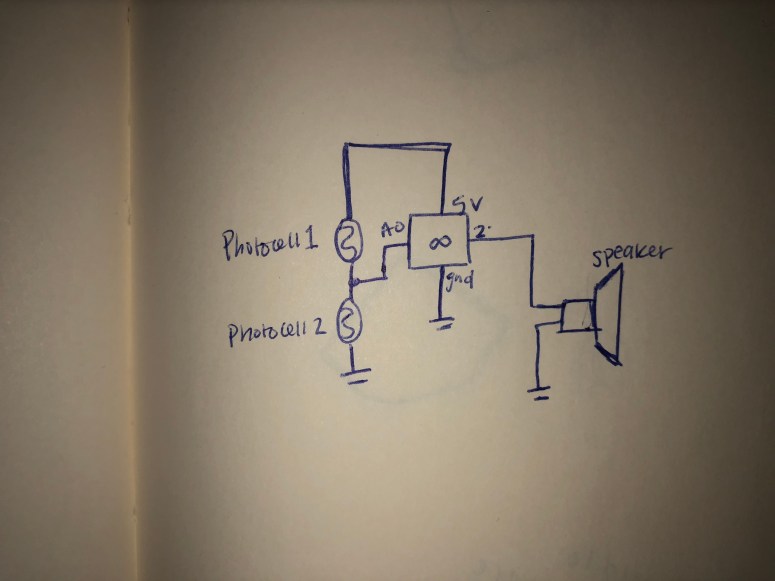 5V
Photocell 1
A0
∞
2
speaker
gnd
Photocell 2